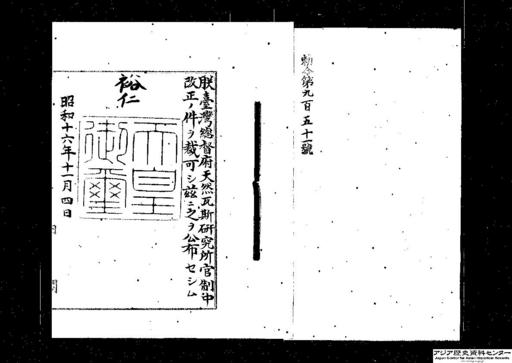 勅令第九百五十一號
朕臺灣總督府天然瓦斯研究所官制中
改正ノ件ヲ裁可シ茲ニ之ヲ公布セシム
裕仁
天皇
御璽
昭和十六年十一月四日
アジア歴史資料センター
Japan Center for Asian Historical Records